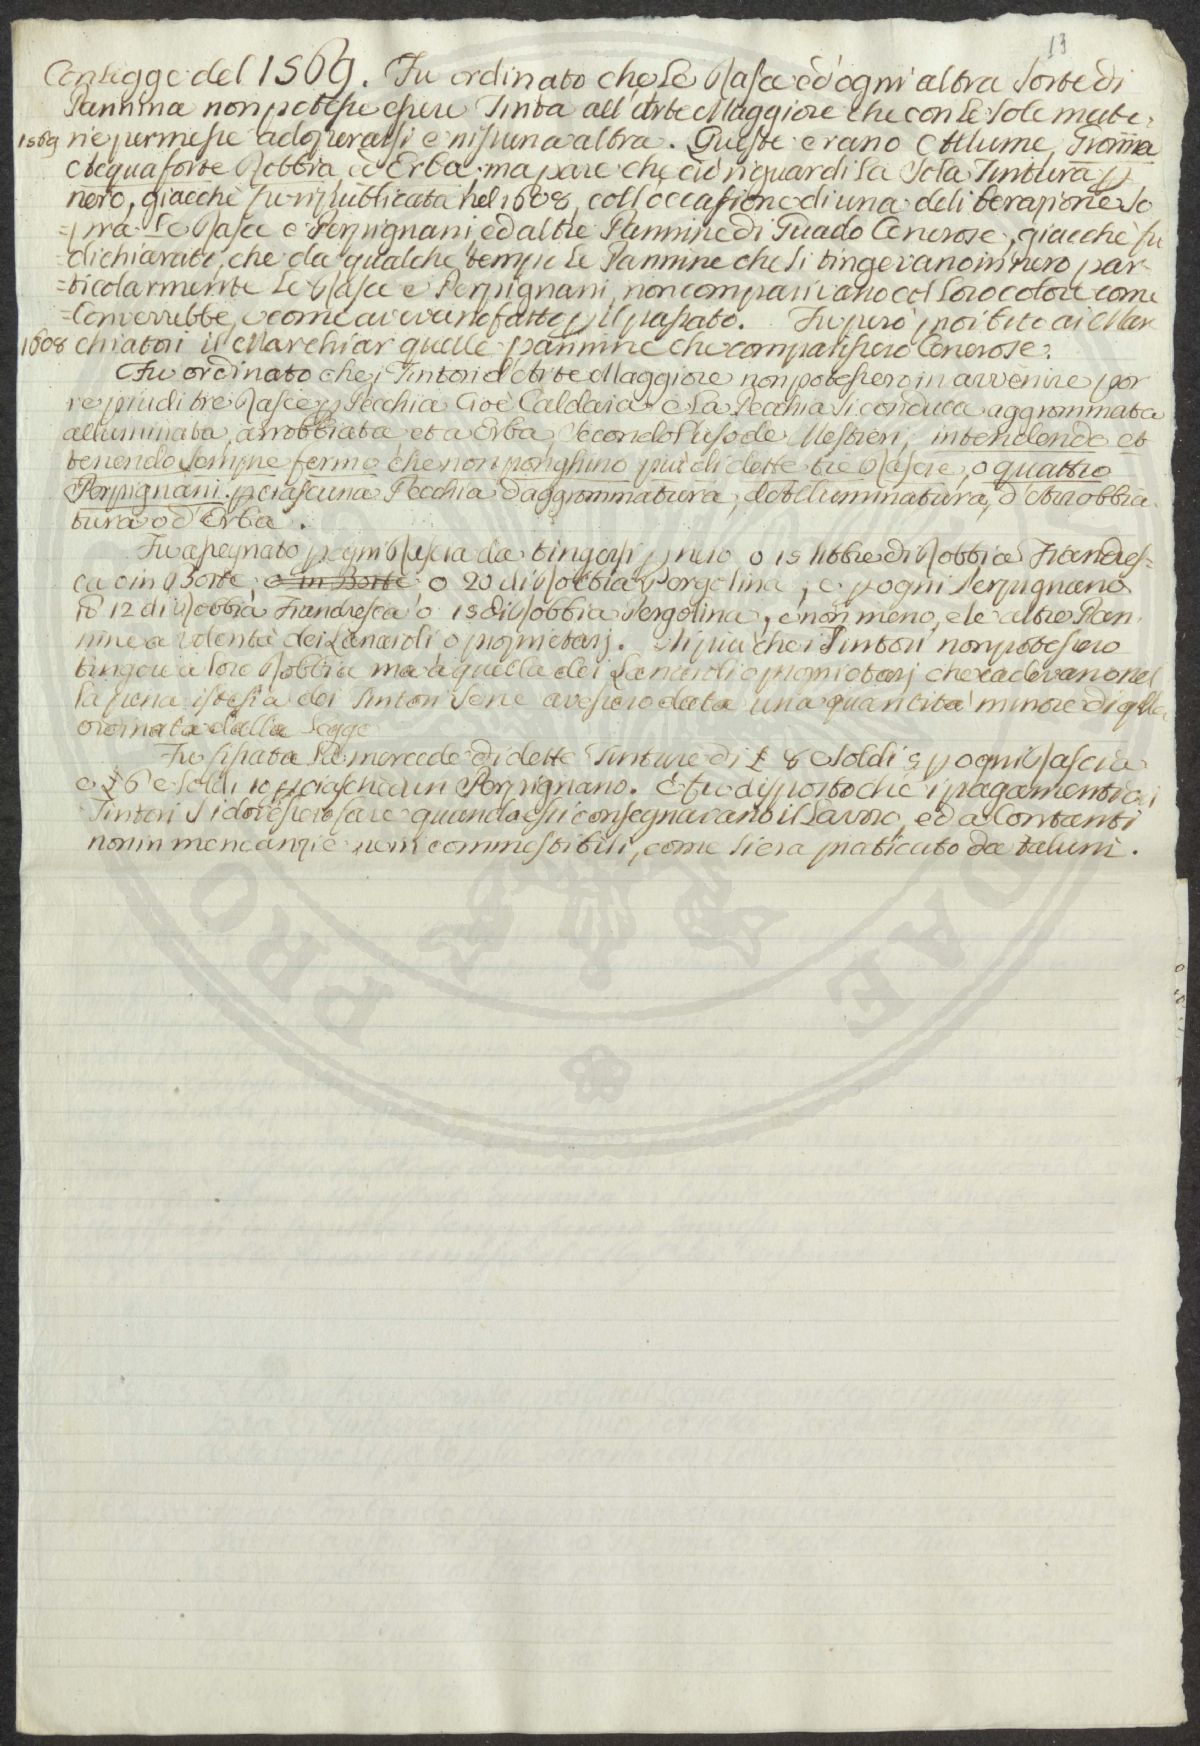 13
Con legge del 1569. Fu ordinato che le Rasce ed ogni altra sorte di
Pannina non potesse essere Tinta all'Arte Maggiore che con le sole mate-
1569 rie permesse adoperarsi e nissuna altra. Queste erano Allume, Gromma
Acquaforte Robbia ed Erba; ma pare che ciò riguardi la sola Tintura p
nero, giacchè fu ripubblicata nel 1608, coll'occasione di una deliberazione so
=pra le Rasce e Perpignani, ed altre Pannine di Guado Cenerose, giacchè fu
=dichiarato, che da qualche tempo le Pannine che si tingevano in nero par-
=ticolarmente le Rasce e Perpignani, non comparivano col loro colore come
=Converrebbe, e come avevano fatto p il passato. Fu però proibito ai Mar
1608 chiatori il Marchiar quelle pannine che comparissero Cenerose.
Fu ordinato che i Tintori d'Arte Maggiore non potessero in avvenire por
re più di tre Rasce p Pecchia Cioè Caldaia e La Pecchia si conduca aggrommata
alluminata, arrobbiata et a Erba, Secondo l'uso de Mestieri, intendendo et
tenendo sempre fermo che non ponghino più di dette tre Rascie, o quattro
Perpignani p ciascuna Pecchia d'aggrommatura, d'Alluminatura, d'Arrobbia-
tura o d'Erba.
Fu assegnato p ogni Rascia da tingersi p nero o 15 libbre di Robbia Fiandres-
ca o in Botte o in Botte o 20 di Robbia Vergolina, e p ogni Perpignano
o 12 di Robbia Fiandresca o 15 di Robbia Vergolina, e non meno, e le altre Pan-
nine a volontà dei Lanaioli o proprietarj. Di più che i Tintori non potessero
tingere a loro Robbia ma a quella dei Lanaioli o proprietarj che cadevano nel
la pena istessa dei Tintori se ne avessero data una quantità minore di qlla
ordinata dalla Legge
Fu fissata La mercede di dette Tinture di £ 8 e soldi 5 p ogni Rascia
e £ 6 e soldi 10 p ciascheun Perpignano. E fu disposto che i pagamenti ai
Tintori si dovessero fare quando essi consegnavano il Lavoro, ed a Contanti
non in mercanzie nè in commestibili, come si era praticato da taluni.